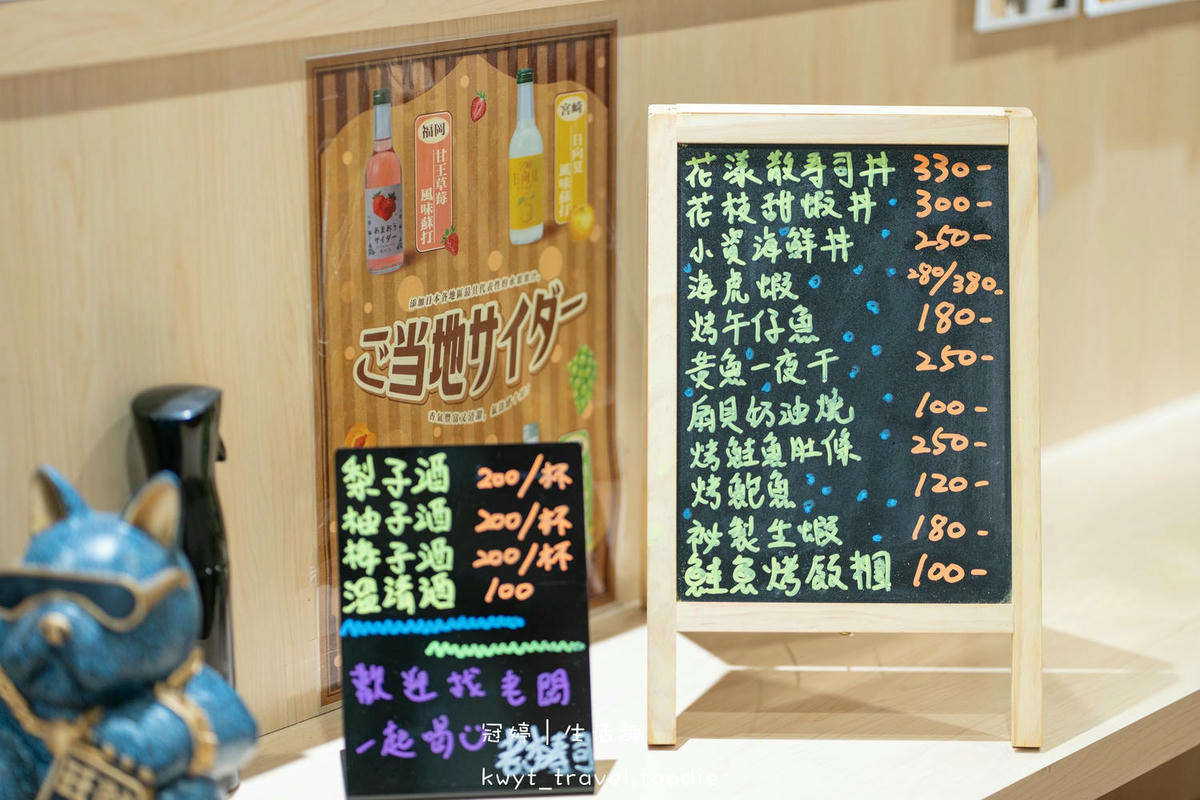 福岡
甘王草莓
風味蘇打
宮崎
日向夏
風味蘇打
あまおう
サイダー
添加日本各地區最具代表性的水果果汁,
ご当地サイダー
花漾散寿司丼 330-
花枝甜蝦丼 300-
小資海鮮丼 250-
海虎蝦 280/380.
烤午仔魚 180-
黃魚一夜干 250-
扇貝奶油燒 100-
烤鮭魚肚條 250-
烤鮑魚 120-
祕製生蝦 180-
鮭魚烤飯糰 100-
梨子酒 200/杯
柚子酒 200/杯
梅子酒 200/杯
溫清酒 100
歡迎找老闆
一起喝
冠婷｜生活趣
kwyt_travel.foodie